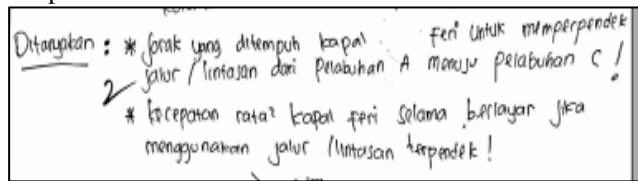 Ditanyakan : * Jarak yang ditempuh kapal feri untuk memperpendek
jalur / lintasan dari Pelabuhan A menuju pelabuhan C !
2
* kecepatan rata² kapal feri selama berlayar jika
menggunakan jalur / lintasan terpendek !